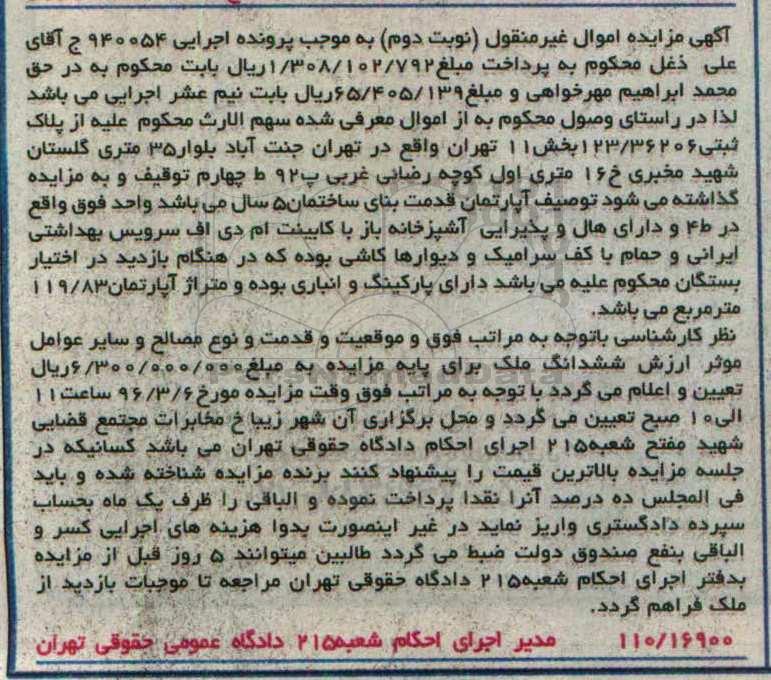 آگهی مزایده اموال غیرمنقول (نوبت دوم) به موجب پرونده اجرایی ۹۴۰۰۵۴ ج آقای
علی دغل محکوم به پرداخت مبلغ۱/۳۰۸/۱۰۲/۷۹۲ریال بابت محکوم به در حق
محمد ابراهیم مهرخواهی و مبلغ۶۵/۴۰۵/۱۳۹ریال بابت نیم عشر اجرایی می باشد
لذا در راستای وصول محکوم به از اموال معرفی شده سهم الارث محکوم علیه از پلاک
ثبتی۱۲۳/۳۶۲۰۶بخش۱۱ تهران واقع در تهران جنت آباد بلوار۳۵ متری گلستان
شهید مخبری خ۱۶ متری اول کوچه رضایی غربی پ۹۲ ط چهارم توقیف و به مزایده
گذاشته می شود توصیف آپارتمان قدمت بنای ساختمان۵ سال می باشد واحد فوق واقع
در ط۴ و دارای هال و پذیرایی آشپزخانه باز با کابینت ام دی اف سرویس بهداشتی
ایرانی و حمام با کف سرامیک و دیوارها کاشی بوده که در هنگام بازدید در اختیار
بستگان محکوم علیه می باشد دارای پارکینگ و انباری بوده و متراژ آپارتمان۱۱۹/۸۳
مترمربع می باشد.
نظر کارشناسی باتوجه به مراتب فوق و موقعیت و قدمت و نوع مصالح و سایر عوامل
موثر ارزش ششدانگ ملک برای پایه مزایده به مبلغ۶/۳۰۰/۰۰۰/۰۰۰ریال
تعیین و اعلام می گردد با توجه به مراتب فوق وقت مزایده مورخ۹۶/۳/۶ ساعت۱۱
الی۱۰ صبح تعیین می گردد و محل برگزاری آن شهر زیبا خ مخابرات مجتمع قضایی
شهید مفتح شعبه۲۱۵ اجرای احکام دادگاه حقوقی تهران می باشد کسانیکه در
جلسه مزایده بالاترین قیمت را پیشنهاد کنند برنده مزایده شناخته شده و باید
فی المجلس ده درصد آنرا نقدا پرداخت نموده و الباقی را ظرف یک ماه بحساب
سپرده دادگستری واریز نماید در غیر اینصورت بدوا هزینه های اجرایی کسر و
الباقی بنفع صندوق دولت ضبط می گردد طالبین میتوانند ۵ روز قبل از مزایده
بدفتر اجرای احکام شعبه۲۱۵ دادگاه حقوقی تهران مراجعه تا موجبات بازدید از
ملک فراهم گردد.
۱۱۰/۱۶۹۰۰ مدیر اجرای احکام شعبه۲۱۵ دادگاه عمومی حقوقی تهران